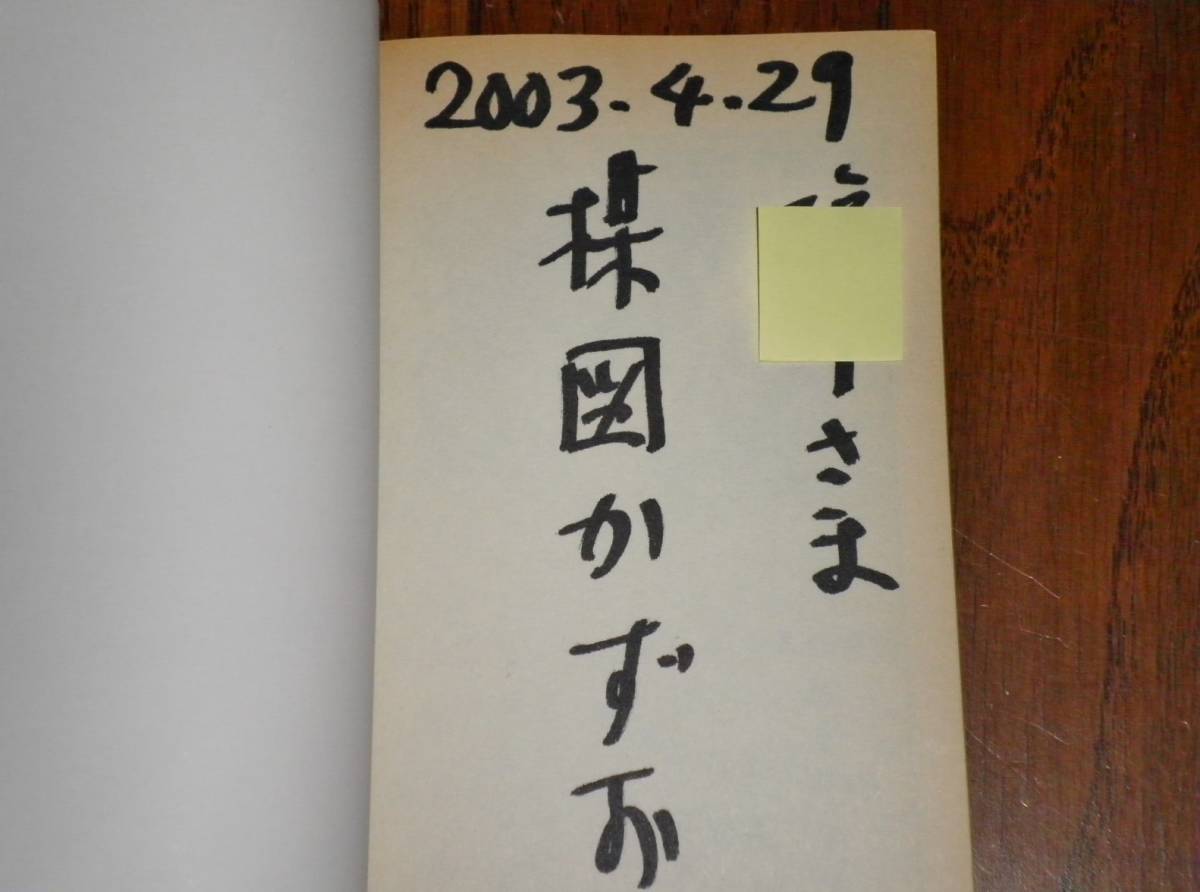 2003.4.29
さま
楳図かずお